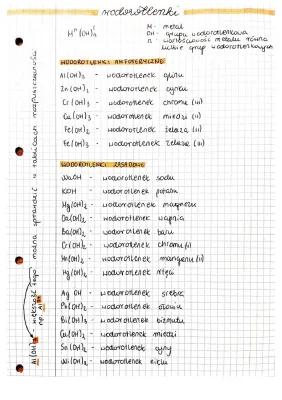 wodorotlenki
M - metal
Mⁿ(OH)ₙ
OH - grupa wodorotlenkowa
n - wartościowość metalu równa
liczbie grup wodorotlenkowych
WODOROTLENKI AMFOTERYCZNE
Al(OH)₃ - wodorotlenek glinu
Zn(OH)₂ - wodorotlenek cynku
Cr(OH)₃ - wodorotlenek chromu (III)
Cu(OH)₂ - wodorotlenek miedzi (II)
Fe(OH)₂ - wodorotlenek żelaza (II)
Fe(OH)₃ - wodorotlenek żelaza (III)
WODOROTLENKI ZASADOWE
NaOH - wodorotlenek sodu
KOH - wodorotlenek potasu
Mg(OH)₂ - wodorotlenek magnezu
Ca(OH)₂ - wodorotlenek wapnia
Ba(OH)₂ - wodorotlenek baru
Cr(OH)₂ - wodorotlenek chromu (II)
Mn(OH)₂ - wodorotlenek manganu (II)
Hg(OH)₂ - wodorotlenek rtęci
AgOH - wodorotlenek srebra
Pb(OH)₂ - wodorotlenek ołowiu
Bi(OH)₃ - wodorotlenek bizmutu
Cu(OH)₂ - wodorotlenek miedzi
Sn(OH)₂ - wodorotlenek cyny
Ni(OH)₂ - wodorotlenek niklu
większość tego można sprawdzić w tablicach rozpuszczalności
np. Al
Al(OH)₃